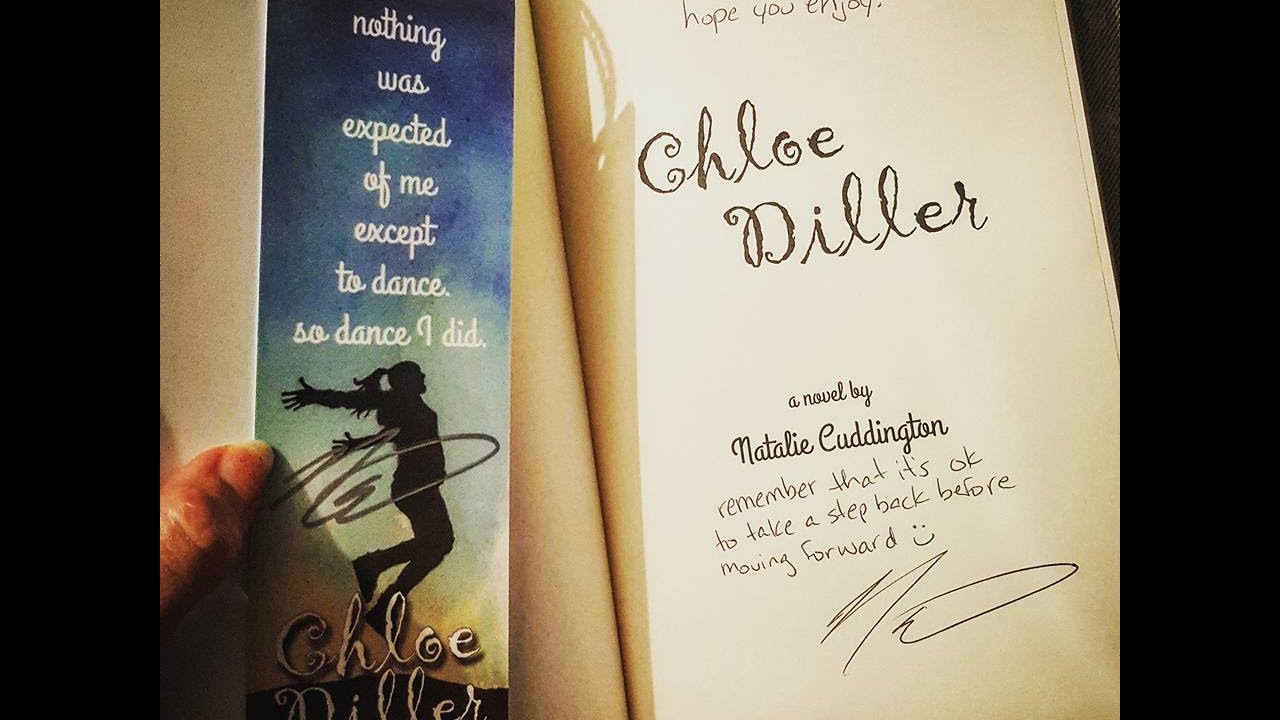 nothing
was
expected
of me
except
to dance.
so dance I did.
Chloe
Diller
hope you enjoy!
Chloe
Diller
a novel by
Natalie Cuddington
remember that it's ok
to take a step back before
moving forward :)